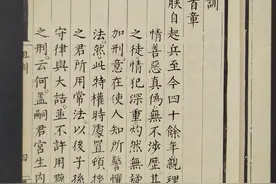 訓
首章
朕自起兵至今四十餘年親理
情善惡真偽無不涉歷其
之徒情犯深重灼然無疑
加刑意在使人知所警懼
法然此特權時處置頓挫
之君所用常法以後子孫
守律與大誥並不許用黥
之刑云何蓋嗣君宮生內